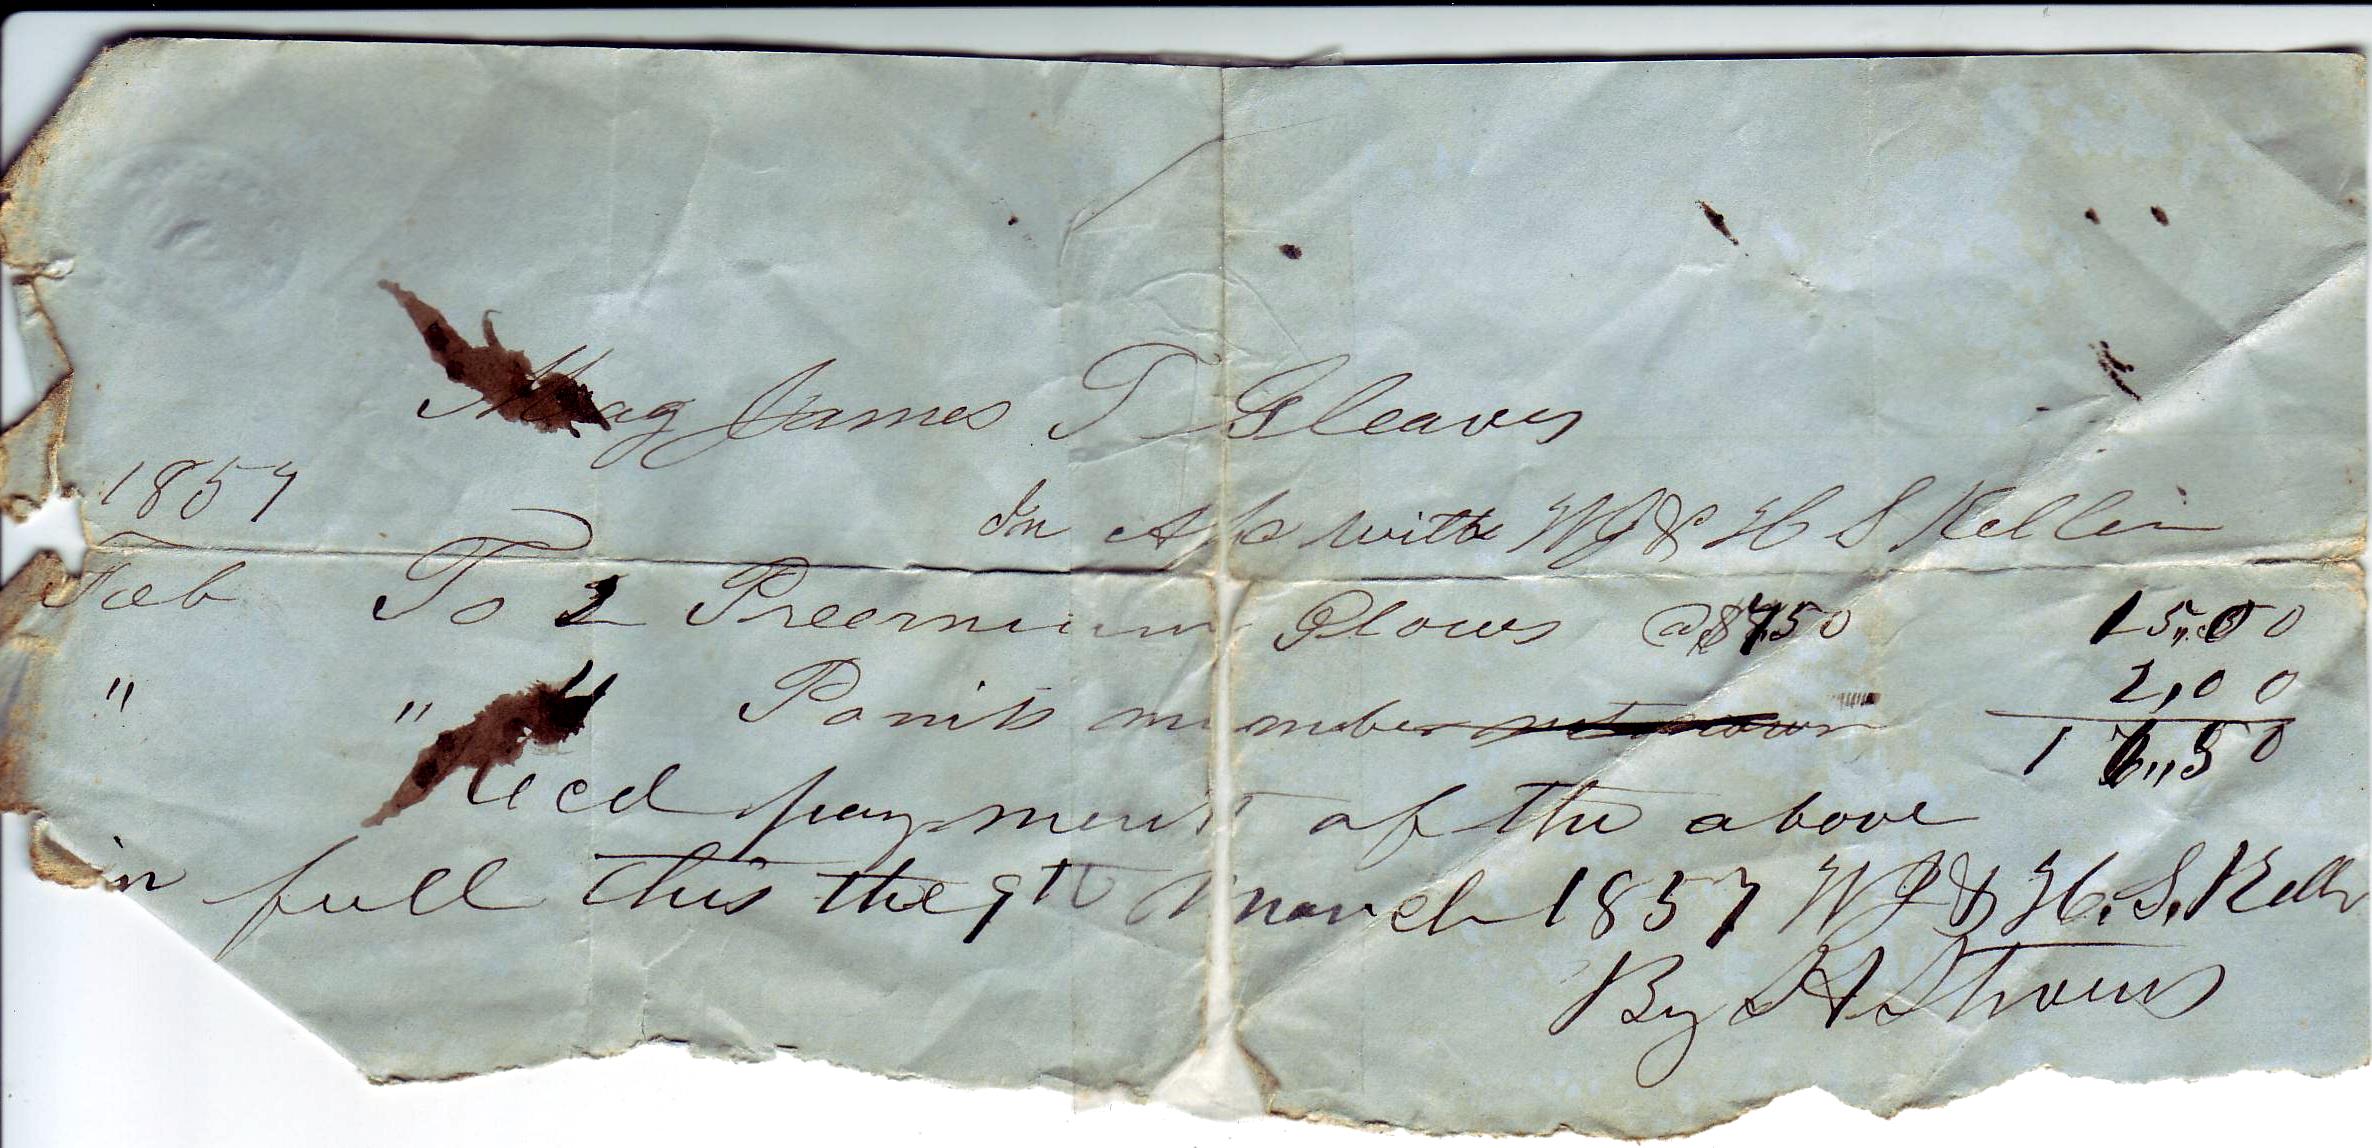 Mag James T Gleaves
1857
In A/c with WJ & H S Keller
Feb To 2 Preemium Plows @ $7,50 15,,00
" " 4 Points number 2,00
1 ,,50
Recd payment of the above
in full this the 9th March 1857 WJ & H. S. Keller
By A